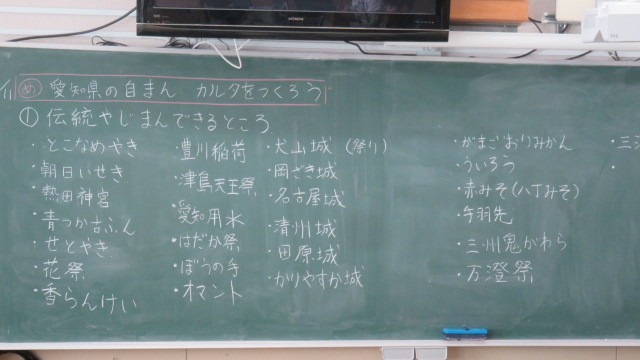 め 愛知県の自まん カルタをつくろう
①伝統やじまんできるところ
・とこなめやき
・朝日いせき
・熱田神宮
・青つか古ふん
・せとやき
・花祭
・香らんけい
・豊川稲荷
・津島天王祭
・愛知用水
・はだか祭
・ぼうの手
・オマント
・犬山城(祭り)
・岡ざき城
・名古屋城
・清州城
・田原城
・かりやすか城
・がまごおりみかん
・ういろう
・赤みそ(八丁みそ)
・手羽先
・三州鬼がわら
・万澄祭
・三
HITACHI